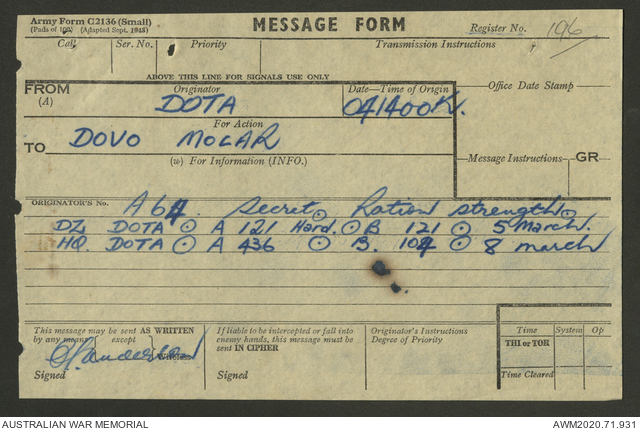 Army Form C2136 (Small)
(Pads of 100) (Adapted Sept. 1943)
MESSAGE FORM
Register No. 196
Call Ser. No. Priority Transmission Instructions
ABOVE THIS LINE FOR SIGNALS USE ONLY
FROM (A) Originator Date-Time of Origin Office Date Stamp
DOTA 041400K.
For Action
TO DOVO MOLAR
(w) For Information (INFO.) Message Instructions GR
ORIGINATOR'S No. A64. Secret Ration strength
DZ DOTA A 121 Hard. B 121 5 March.
HQ. DOTA A 436 B. 104 8 march
This message may be sent AS WRITTEN
by any means (except )
Signed
If liable to be intercepted or fall into
enemy hands, this message must be
sent IN CIPHER
Signed
Originator's Instructions
Degree of Priority
Time System Op
THI or TOR
Time Cleared
AUSTRALIAN WAR MEMORIAL AWM2020.71.931